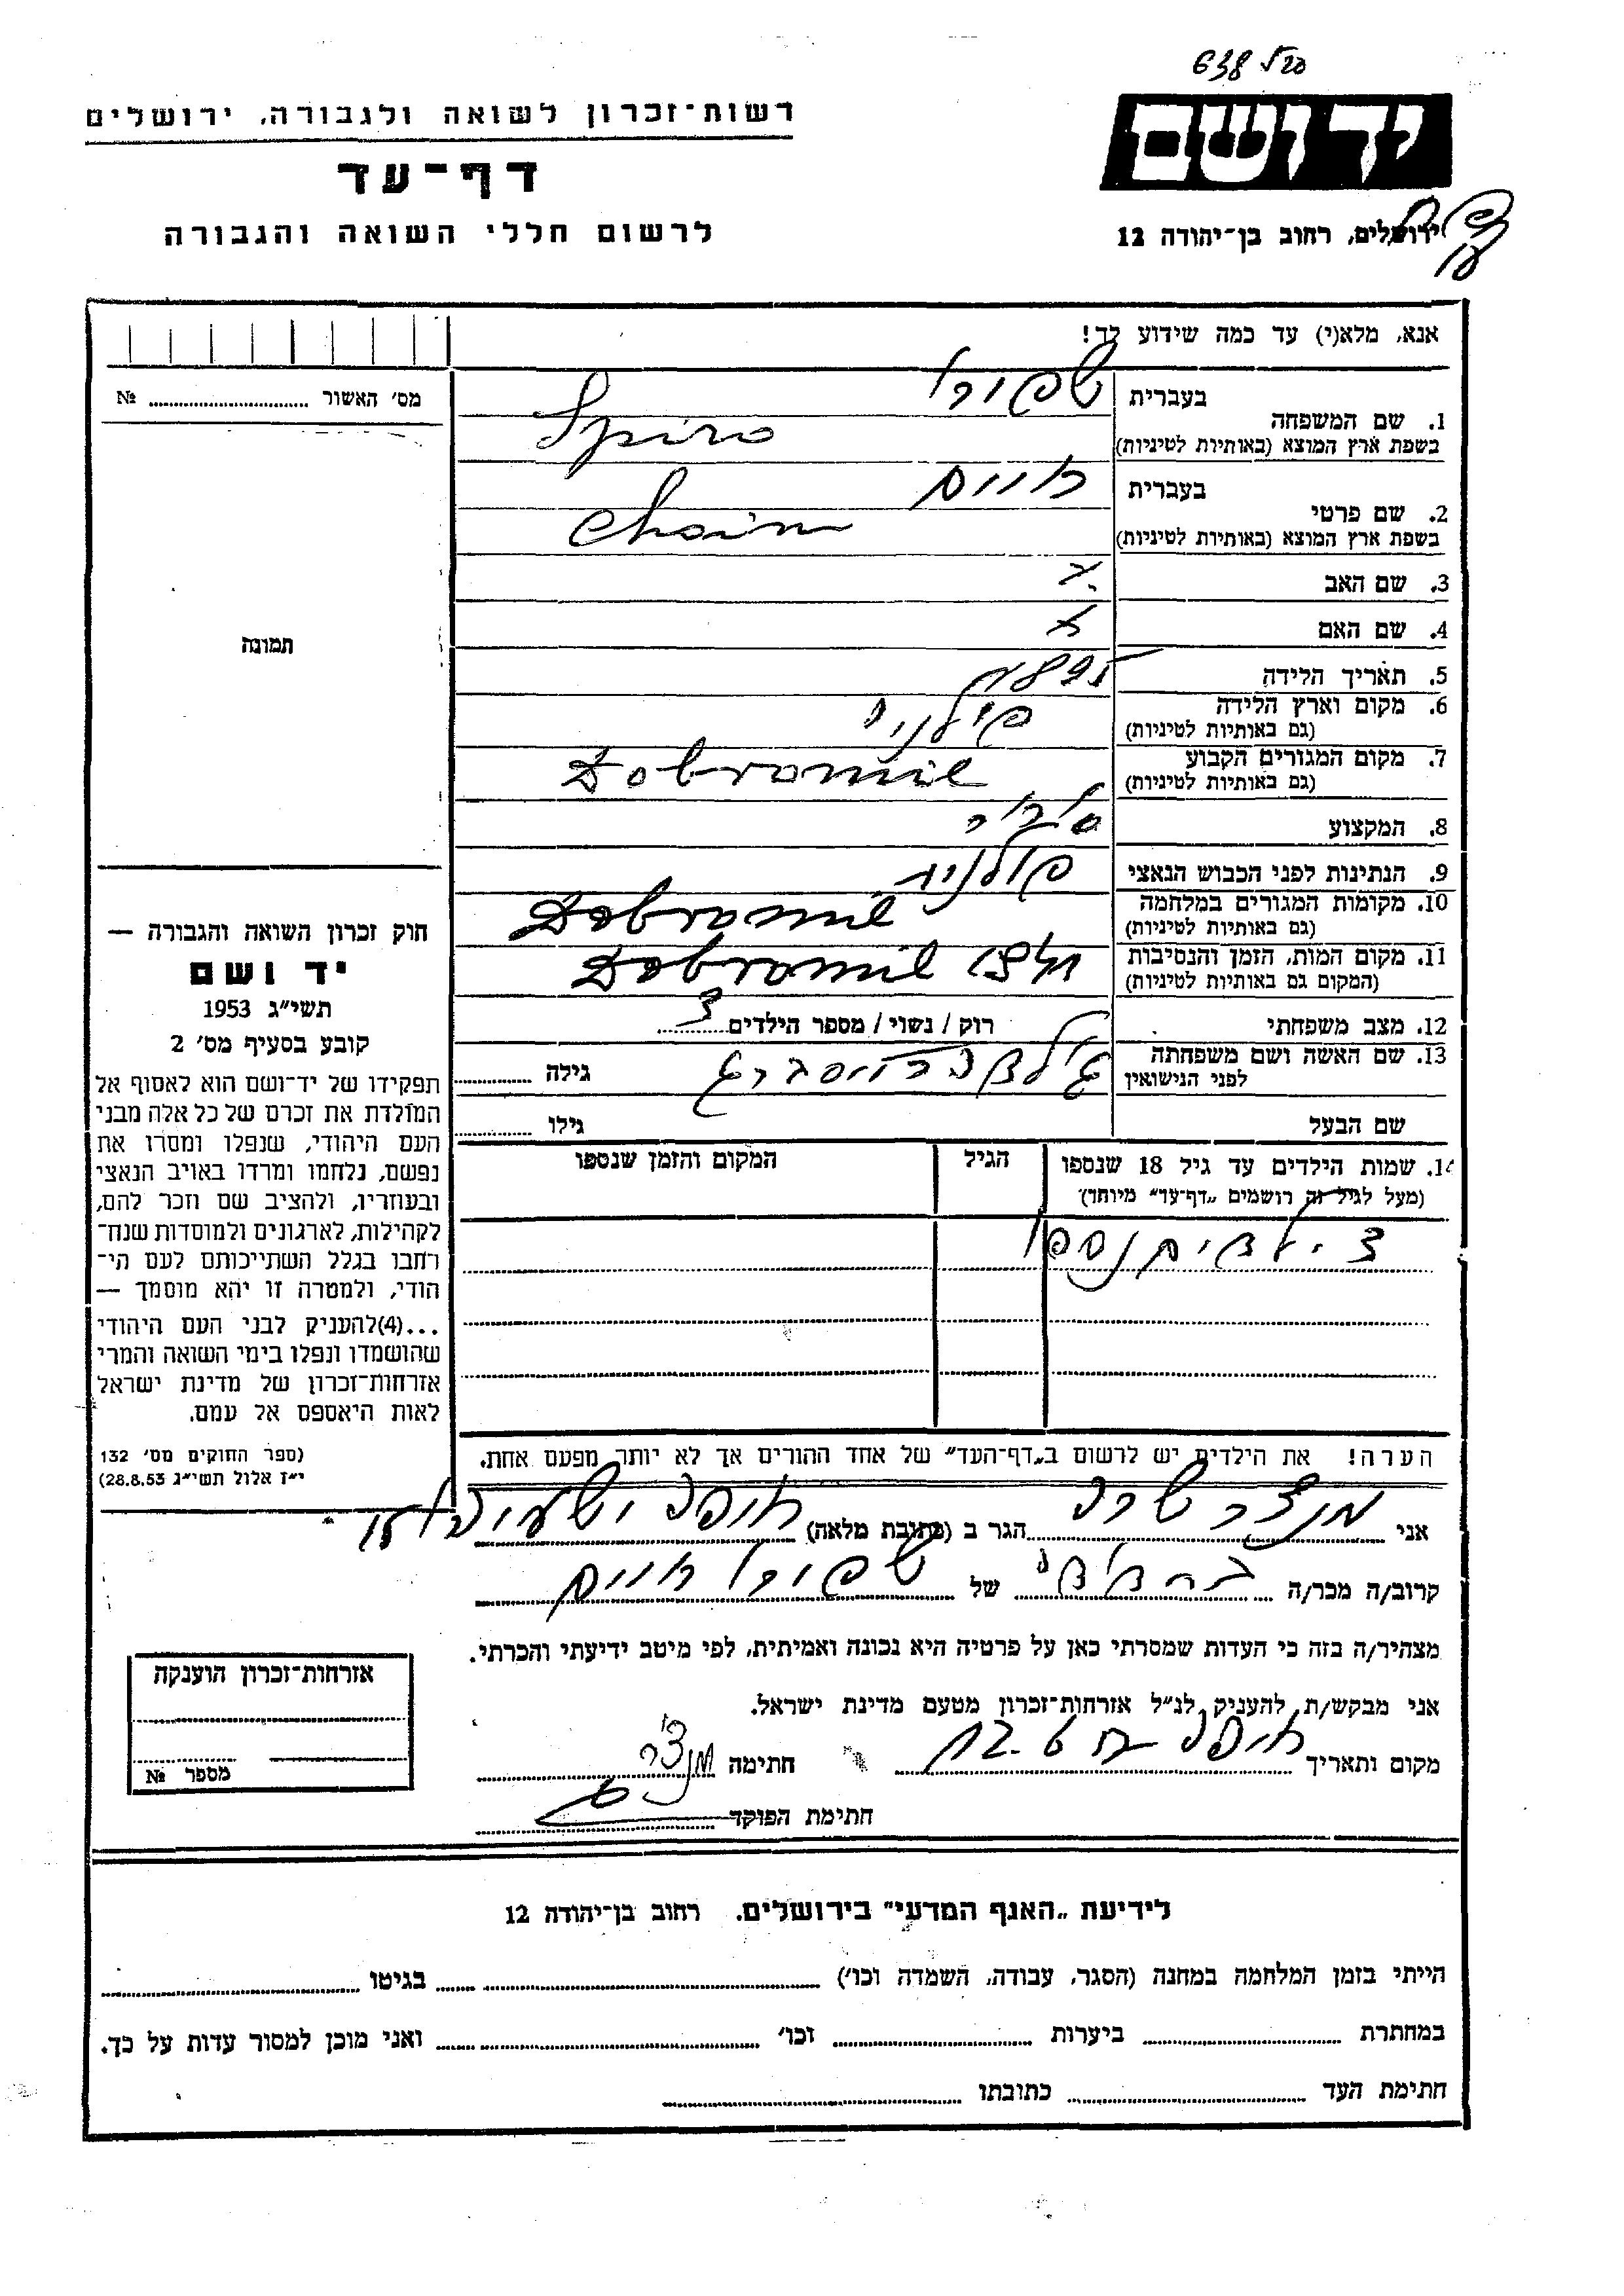 638
רשות־זכרון לשואה ולגבורה, ירושלים
יד ושם
דף־עד
לרשום חללי השואה והגבורה
ירושלים, רחוב בן־יהודה 12
אנא, מלא(י) עד כמה שידוע לך!
מס׳ האשור № 
1. שם המשפחה בעברית שפירו
בשפת ארץ המוצא (באותיות לטיניות) Spiro
2. שם פרטי בעברית חיים
בשפת ארץ המוצא (באותיות לטיניות) Chaim
3. שם האב
4. שם האם
תמונה
5. תאריך הלידה
6. מקום וארץ הלידה
(גם באותיות לטיניות)
7. מקום המגורים הקבוע Dobromil
(גם באותיות לטיניות)
8. המקצוע
9. הנתינות לפני הכבוש הנאצי פולנית
10. מקומות המגורים במלחמה Dobromil
(גם באותיות לטיניות)
11. מקום המות, הזמן והנסיבות Dobromil
(המקום גם באותיות לטיניות)
12. מצב משפחתי רוק / נשוי / מספר הילדים
13. שם האשה ושם משפחתה
לפני הנישואין גילה
שם הבעל גילו
חוק זכרון השואה והגבורה —
יד ושם
תשי״ג 1953
קובע בסעיף מס׳ 2
תפקידו של יד־ושם הוא לאסוף אל
המולדת את זכרם של כל אלה מבני
העם היהודי, שנפלו ומסרו את
נפשם, נלחמו ומרדו באויב הנאצי
ובעוזריו, ולהציב שם וזכר להם,
לקהילות, לארגונים ולמוסדות שנח־
רחבו בגלל השתייכותם לעם הי־
הודי, ולמטרה זו יהא מוסמך —
...(4)להעניק לבני העם היהודי
שהושמדו ונפלו בימי השואה והמרי
אזרחות־זכרון של מדינת ישראל
לאות היאספם אל עמם.
(ספר החוקים מס׳ 132
י״ז אלול תשי״ג 28.8.53)
14. שמות הילדים עד גיל 18 שנספו הגיל המקום והזמן שנספו
(מעל לגיל זה רושמים „דף־עד״ מיוחד)
ילדים נספו
הערה! את הילדים יש לרשום ב„דף־העד״ של אחד ההורים אך לא יותר מפעם אחת.
אני מנצר שרה הגר ב (כתובת מלאה) חיפה ישעיהו
קרוב/ה מכר/ה של שפירו חיים
מצהיר/ה בזה כי העדות שמסרתי כאן על פרטיה היא נכונה ואמיתית, לפי מיטב ידיעתי והכרתי.
אני מבקש/ת להעניק לנ״ל אזרחות־זכרון מטעם מדינת ישראל.
מקום ותאריך חיפה חתימה מנצר
חתימת הפוקד
אזרחות־זכרון הוענקה
מספר №
לידיעת „האגף המדעי״ בירושלים. רחוב בן־יהודה 12
הייתי בזמן המלחמה במחנה (הסגר, עבודה, השמדה וכו׳) בגיטו
במחתרת ביערות וכו׳ ואני מוכן למסור עדות על כך.
חתימת העד כתובתו